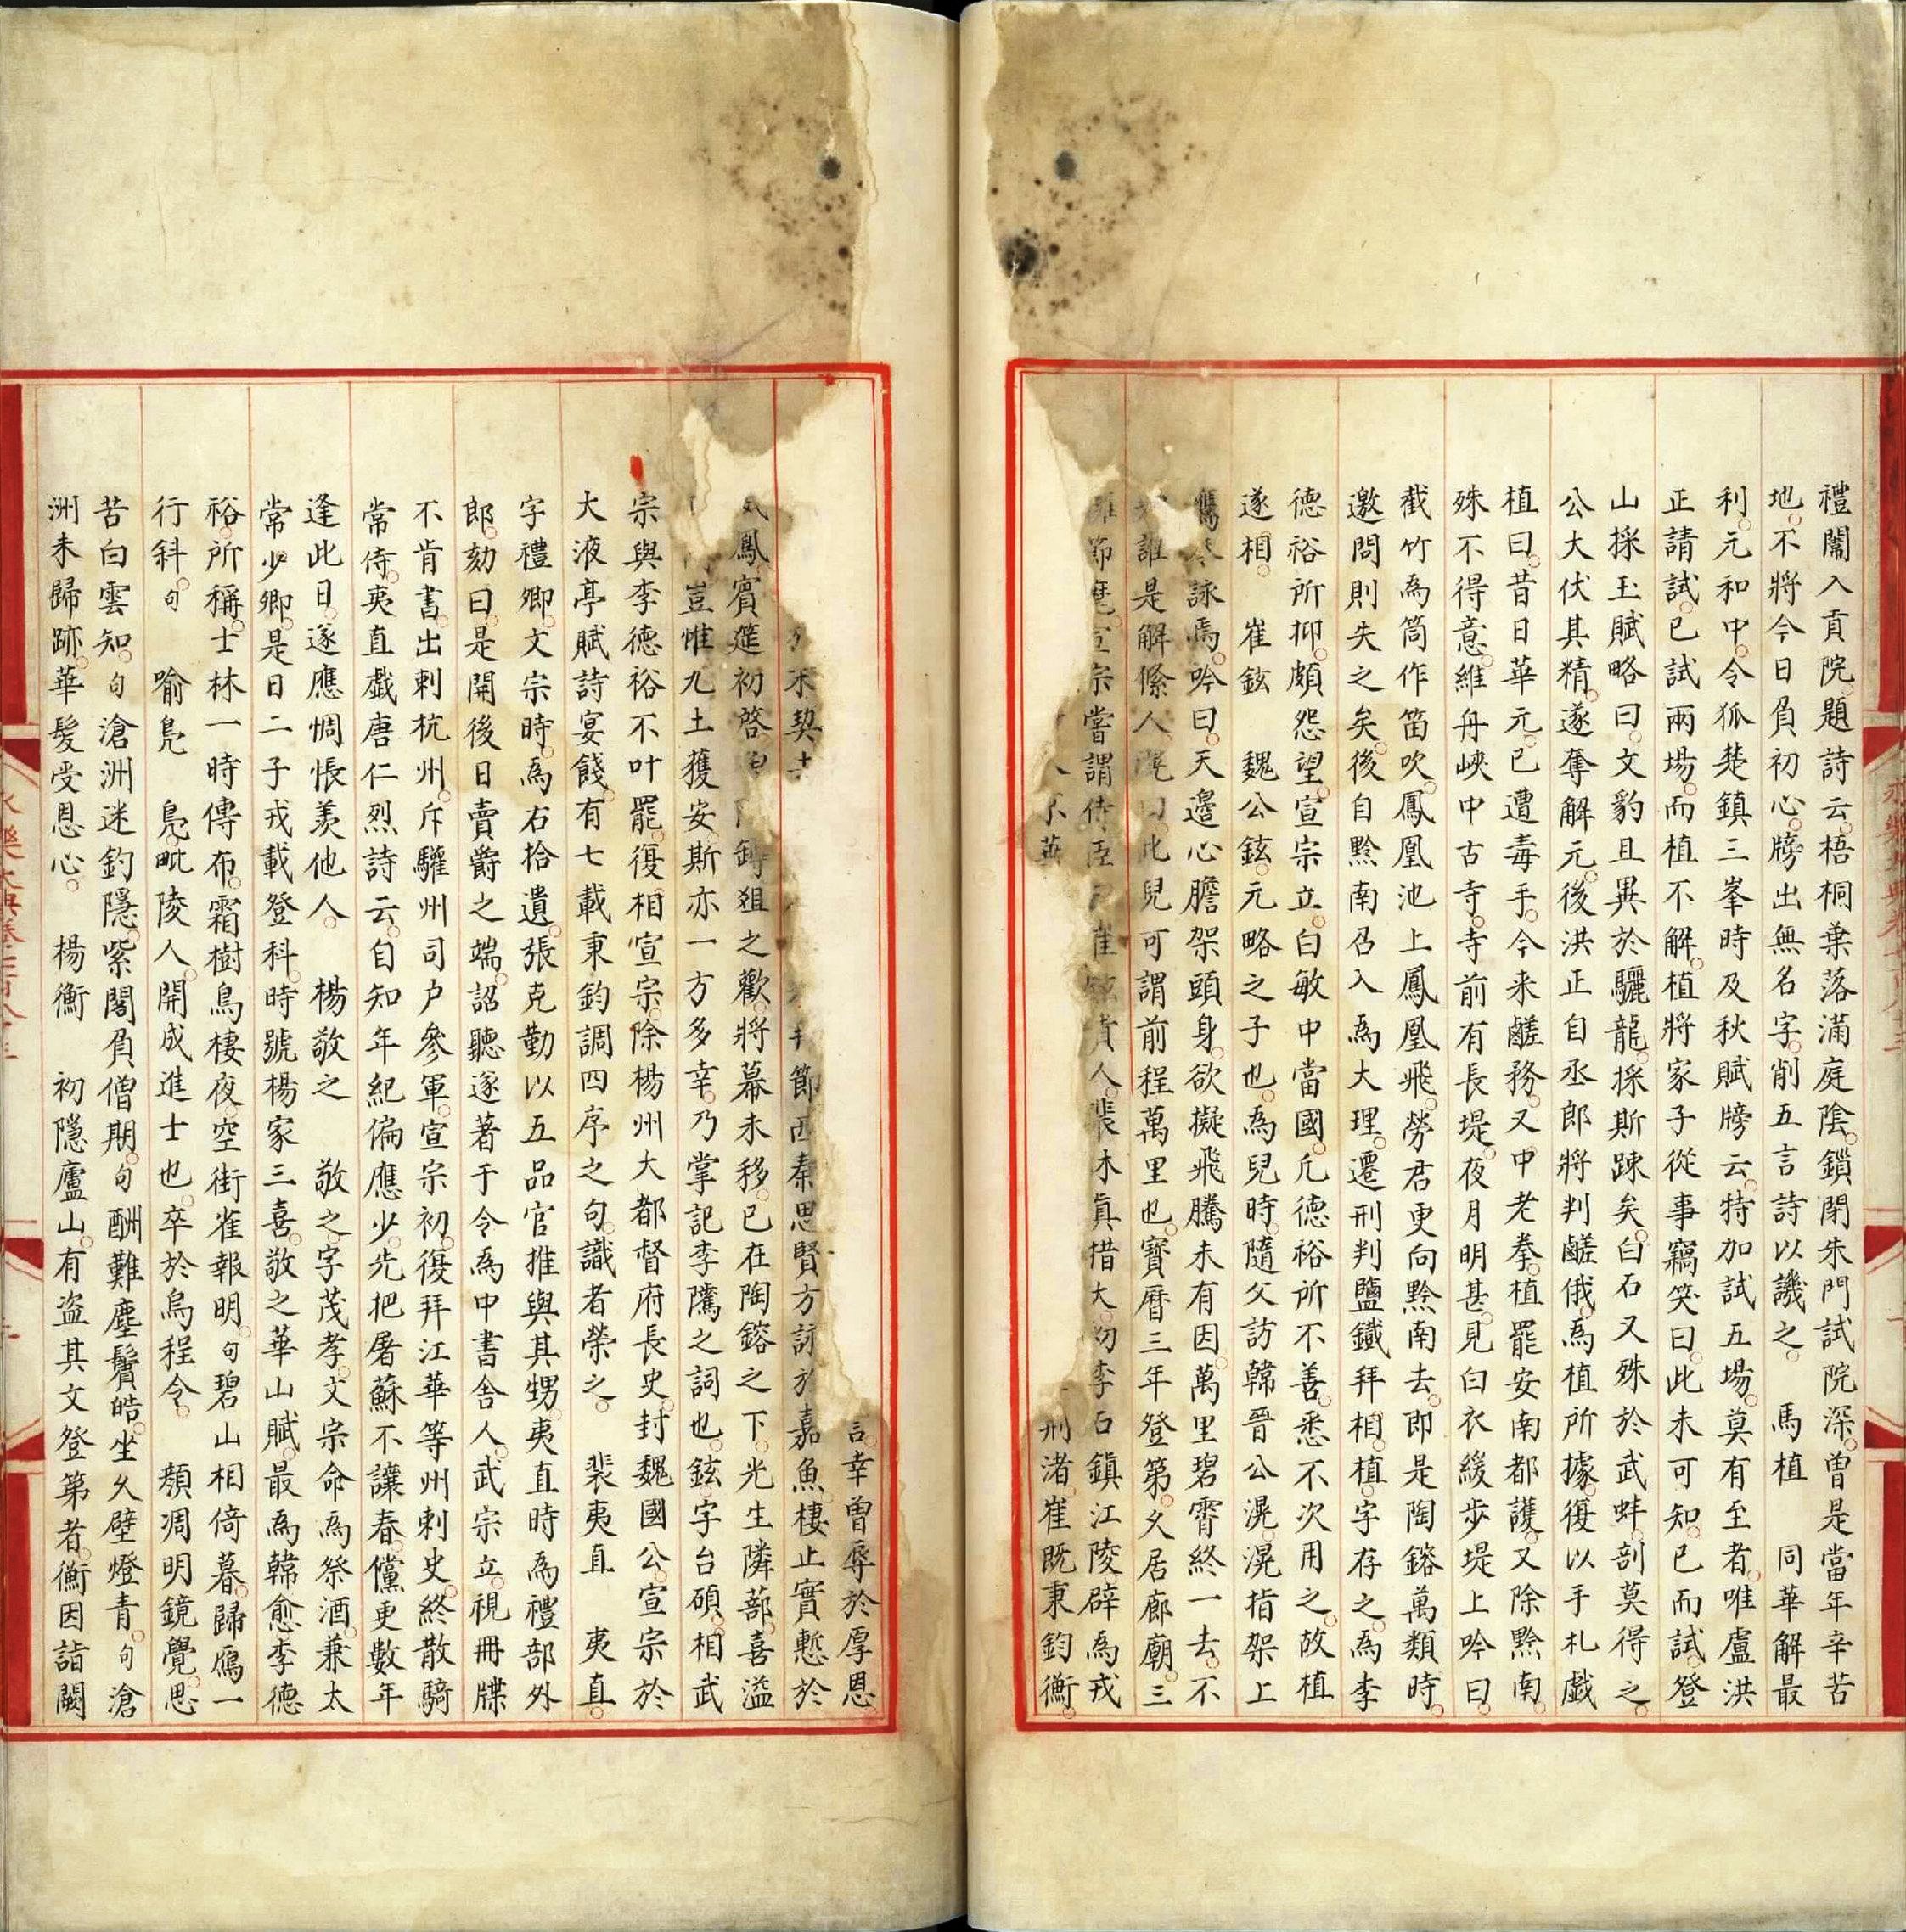 禮闈入貢院題詩云梧桐葉落滿庭陰鎖閉朱門試院深曾是當年辛苦
地不將今日負初心牓出無名字削五言詩以譏之 馬植 同華解最
利元和中令狐楚鎮三峯時及秋賦牓云特加試五場莫有至者唯盧洪
正請試已試兩場而植不解植將家子從事竊笑曰此未可知已而試登
山採玉賦略曰文豹且異於驪龍採斯疎矣白石又殊於武蚌剖莫得之
公大伏其精遂奪解元後洪正自丞郎將判鹺俄為植所據復以手札戲
植曰昔日華元已遭毒手今来鹺務又中老拳植罷安南都護又除黔南
殊不得意維舟峽中古寺寺前有長堤夜月明甚見白衣緩步堤上吟曰
截竹為筒作笛吹鳳凰池上鳳凰飛勞君更向黔南去即是陶鎔萬類時
邀問則失之矣後自黔南召入為大理遷刑判鹽鐵拜相植字存之為李
德裕所抑頗怨望宣宗立白敏中當國凢德裕所不善悉不次用之故植
遂相 崔鉉 魏公鉉元略之子也為兒時隨父訪韓晉公滉滉指架上
鷹 詠焉吟曰天邊心膽架頭身欲擬飛騰未有因萬里碧霄終一去不
誰是解絛人 此兒可謂前程萬里也寶曆三年登第久居廊廟三
節麾宣宗嘗謂侍臣曰崔鉉真貴人裴休真措大初李石鎮江陵辟為戎
刑渚崔既秉鈞衡
言幸曾辱於厚恩
節西秦思賢方訪於嘉魚棲止實慙於
鳳賓筵初啓 鐏俎之歡將幕未移已在陶鎔之下光生隣蔀喜溢
豈惟九土獲安斯亦一方多幸乃掌記李隲之詞也鉉字台碩相武
宗與李德裕不叶罷復相宣宗除楊州大都督府長史封魏國公宣宗於
大液亭賦詩宴餞有七載秉鈞調四序之句識者榮之 裴夷直 夷直
字禮卿文宗時為右拾遺張克勤以五品官推與其甥夷直時為禮部外
郎劾曰是開後日賣爵之端詔聽遂著于令為中書舍人武宗立視冊牒
不肯書出刺杭州斥驩州司户參軍宣宗初復拜江華等州刺史終散騎
常侍夷直戲唐仁烈詩云自知年紀偏應少先把屠蘇不讓春儻更數年
逢此日遂應惆悵羨他人 楊敬之 敬之字茂孝文宗命為祭酒兼太
常少卿是日二子戎載登科時號楊家三喜敬之華山賦最為韓愈李德
裕所稱士林一時傳布霜樹鳥棲夜空街雀報明句碧山相倚暮歸鴈一
行斜句 喻鳧 鳧毗陵人開成進士也卒於烏程令 顏凋明鏡覺思
苦白雲知句滄洲迷釣隱紫閣負僧期句酬難塵鬢皓坐久壁燈青句滄
洲未歸跡華髪受恩心 楊衡 初隱廬山有盜其文登第者衡因詣闕